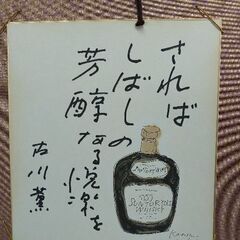 されば
しばしの
芳醇なる悦楽を
古川薫
SUNTORY
WHISKY